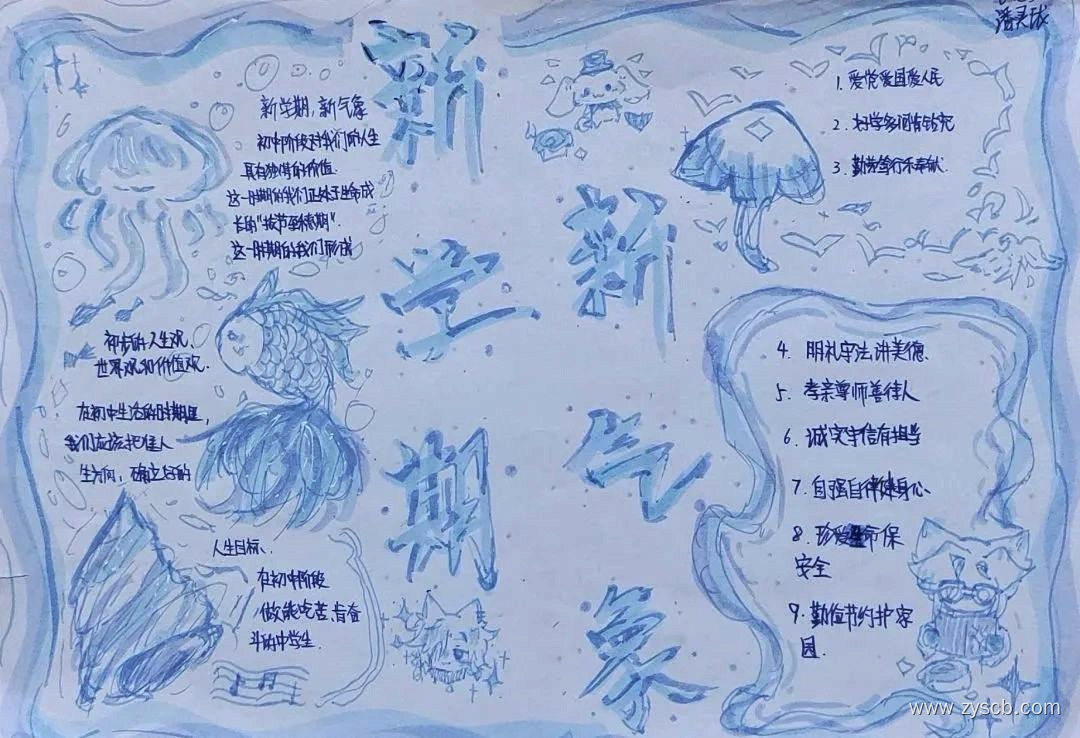 潘灵珑
新学期
新气象
新学期,新气象
初中阶段对我们的人生
具有独特的价值.
这一时期的我们正处于生命成
长的"拔节孕穗期".
这一时期的我们形成
初步的人生观、
世界观和价值观.
在初中生活的时期里,
我们应该把握人
生方向,确立好的
人生目标、
在初中阶段
做能吃苦、肯奋
斗的中学生.
1. 爱党爱国爱人民
2. 好学多问肯钻究
3. 勤劳笃行乐奉献.
4. 明礼守法讲美德、
5. 孝亲尊师善待人
6. 诚实守信有担当
7. 自强自律健身心、
8. 珍爱生命保
安全
9. 勤俭节约护家
园.
www.zyscb.com